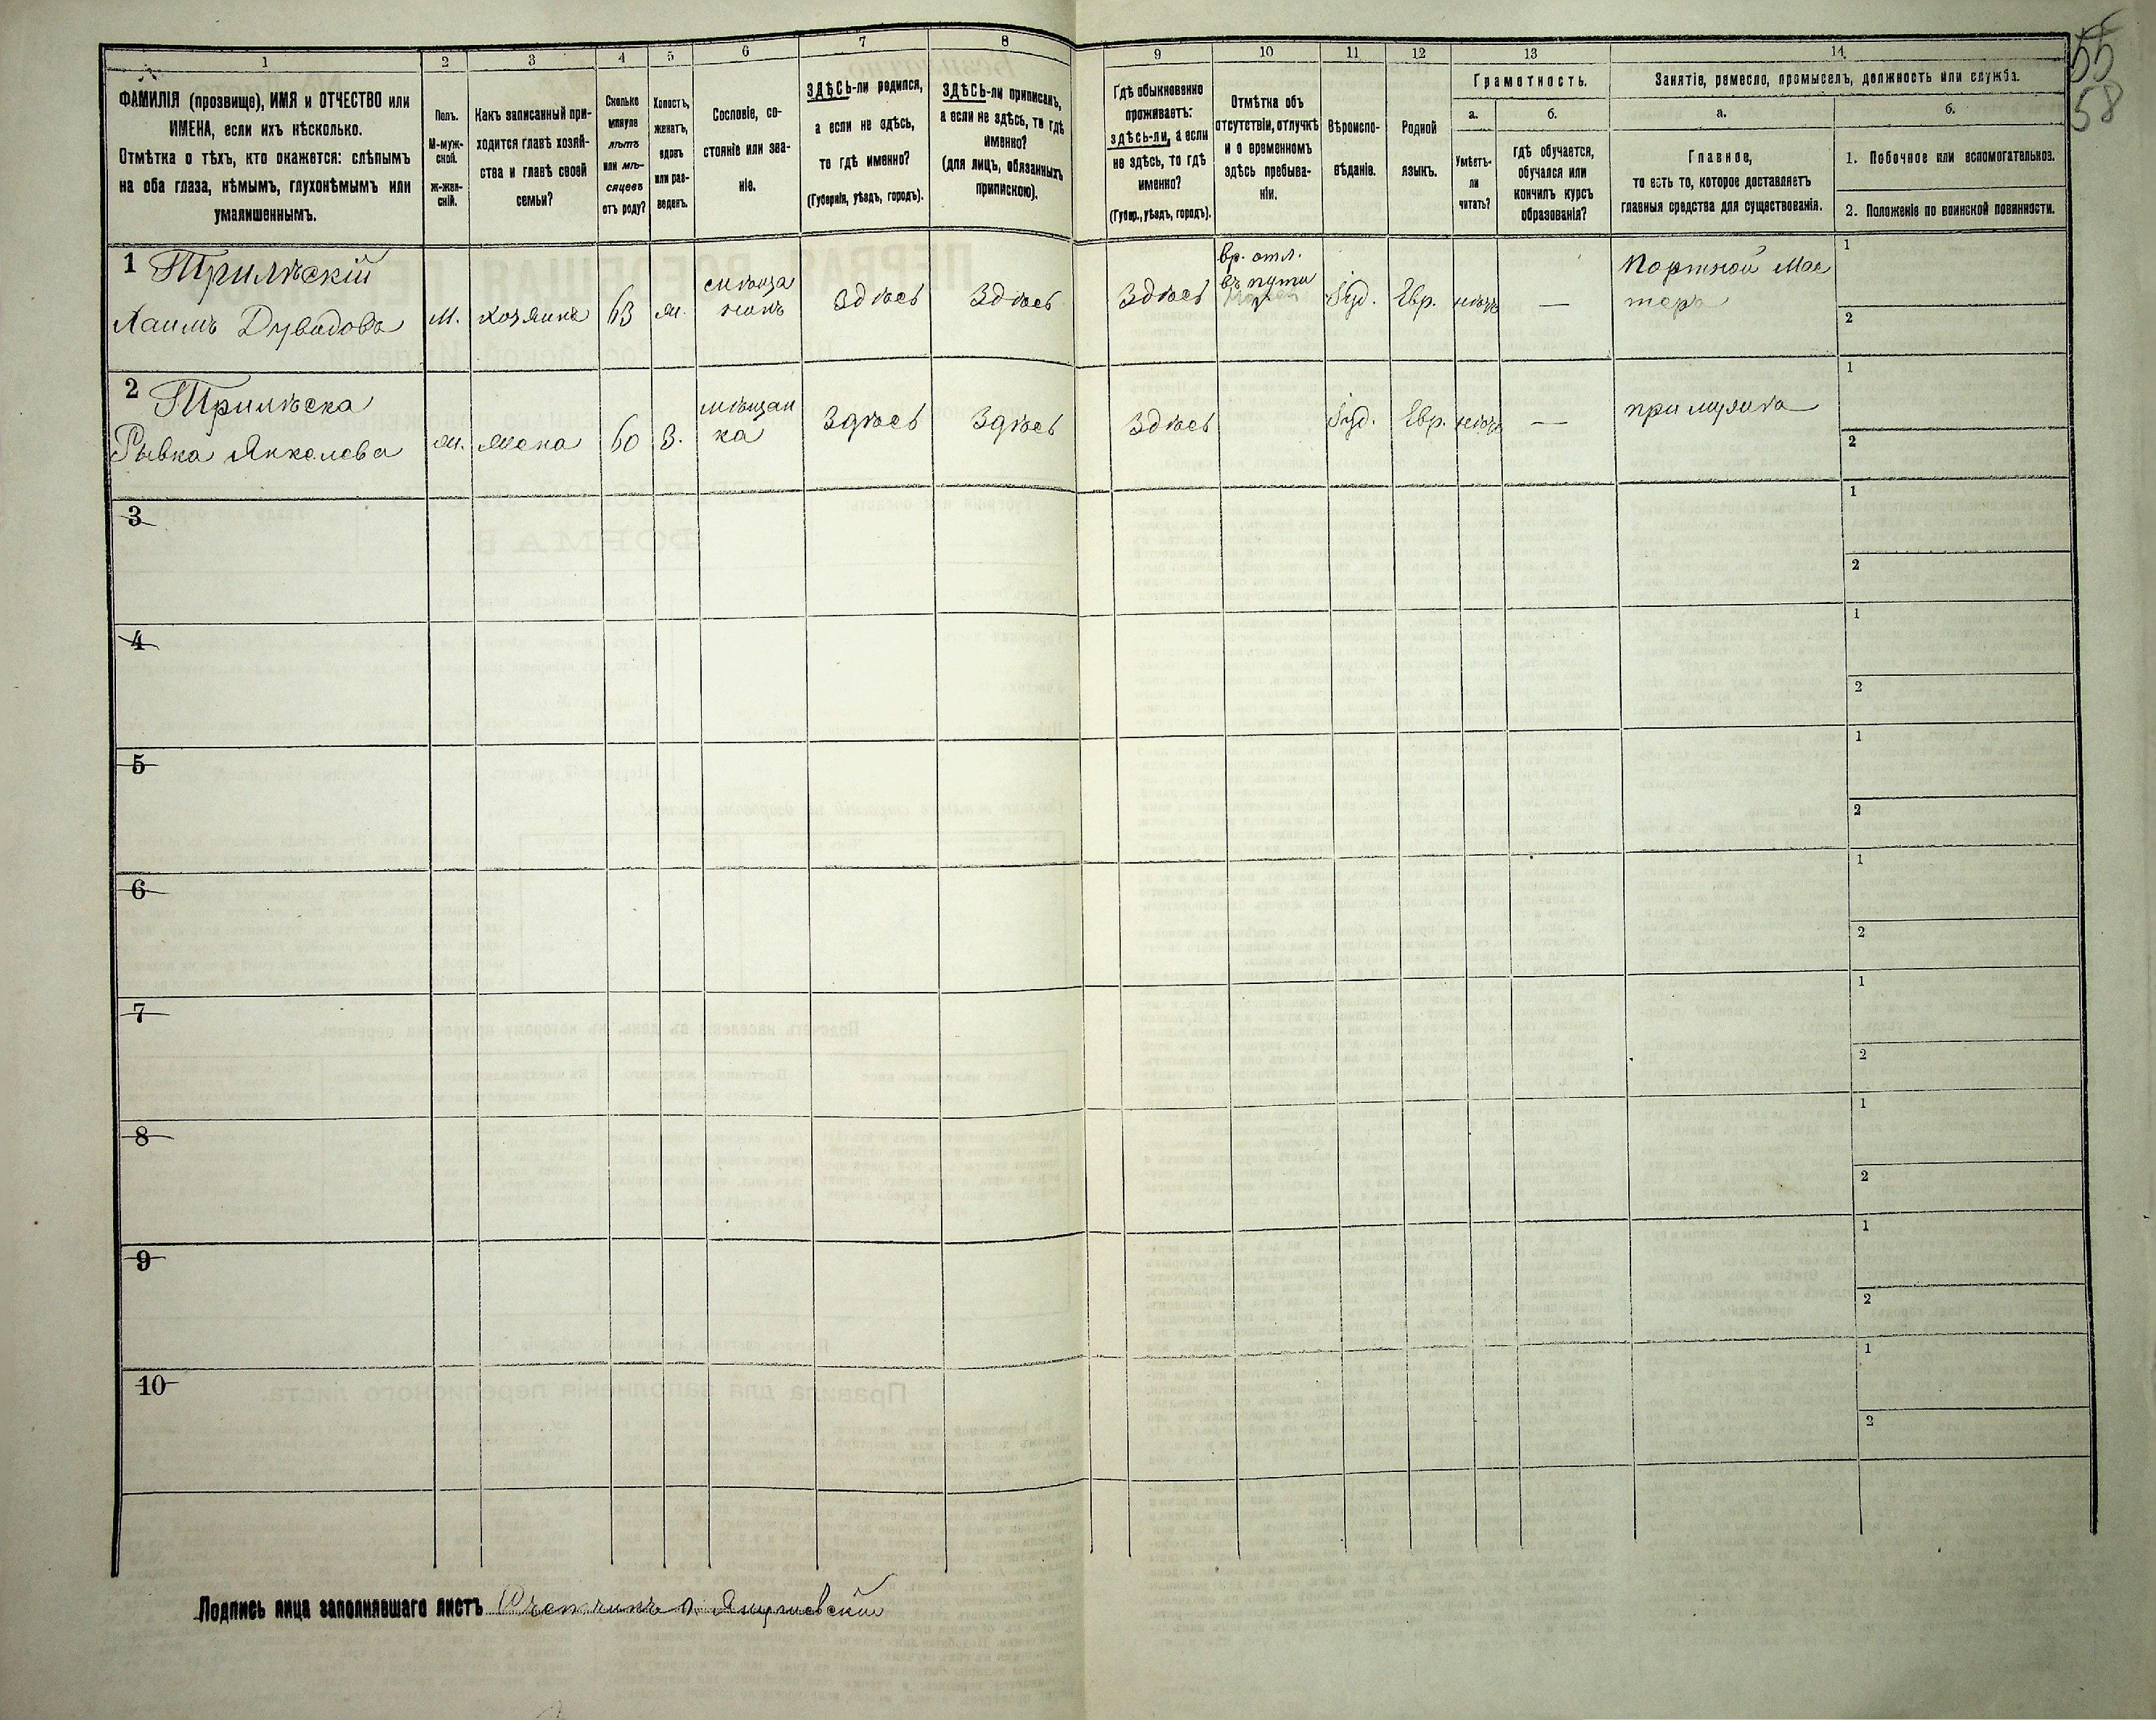 55
58
1
2
3
4
5
6
7
8
9
10
11
12
13
14
ФАМИЛІЯ (прозвище), ИМЯ и ОТЧЕСТВО или
ИМЕНА, если ихъ нѣсколько.
Отмѣтка о тѣхъ, кто окажется: слѣпымъ
на оба глаза, нѣмымъ, глухонѣмымъ или
умалишеннымъ.
Полъ.
М-муж-
ской.
ж-жен-
скій.
Какъ записанный при-
ходится главѣ хозяй-
ства и главѣ своей
семьи?
Сколько
минуло
лѣтъ
или мѣ-
сяцевъ
отъ роду?
Холостъ,
женатъ,
вдовъ
или раз-
веденъ.
Сословіе, со-
стояніе или зва-
ніе.
ЗДѢСЬ-ли родился,
а если не здѣсь,
то гдѣ именно?
(Губернія, уѣздъ, городъ).
ЗДѢСЬ-ли приписанъ,
а если не здѣсь, то гдѣ
именно?
(для лицъ, обязанныхъ
припискою).
Гдѣ обыкновенно
проживаетъ:
здѣсь-ли, а если
не здѣсь, то гдѣ
именно?
(Губер., уѣздъ, городъ).
Отмѣтка объ
отсутствіи, отлучкѣ
и о временномъ
здѣсь пребыва-
ніи.
Вѣроиспо-
вѣданіе.
Родной
языкъ.
Грамотность.
а.
Умѣетъ-
ли
читать?
б.
гдѣ обучается,
обучался или
кончилъ курсъ
образованія?
Занятіе, ремесло, промыселъ, должность или служба.
а.
Главное,
то есть то, которое доставляетъ
главныя средства для существованія.
б.
1. Побочное или вспомогательное.
2. Положеніе по воинской повинности.
1 Трилѣскій
Хаимъ Дувидовъ
М.
хозяинъ
63
ж.
мѣща
нинъ
Здѣсь
Здѣсь
Здѣсь
вр. отл.
въ пути
Іуд.
Евр.
нѣтъ
—
Портной Мас
теръ
1
2
2 Трилѣска
Рывка Янкелева
ж.
жена
60
З.
мѣщан
ка
Здѣсь
Здѣсь
Здѣсь
Іуд.
Евр.
нѣтъ
—
при мужѣ
1
2
3
1
2
4
1
2
5
1
2
6
1
2
7
1
2
8
1
2
9
1
2
10
1
2
Подпись лица заполнявшаго листъ Счетчикъ